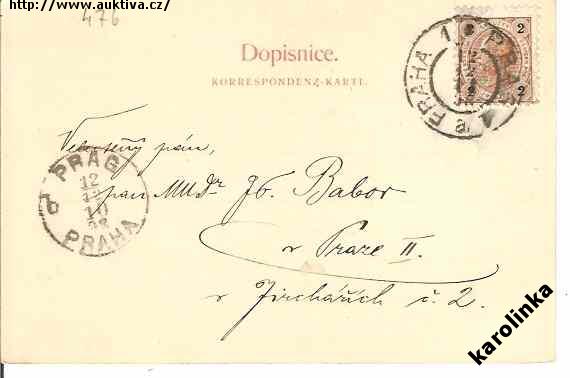 http://www.auktiva.cz/
476
Dopisnice.
KORRESPONDENZ-KARTE.
2 2
2 2
PRAHA 1 PRAG
a
Velectěný pán,
pan MUDr Jos. Babor
v Praze II.
v Jirchářích č. 2.
PRAG
12
PRAHA
karolinka